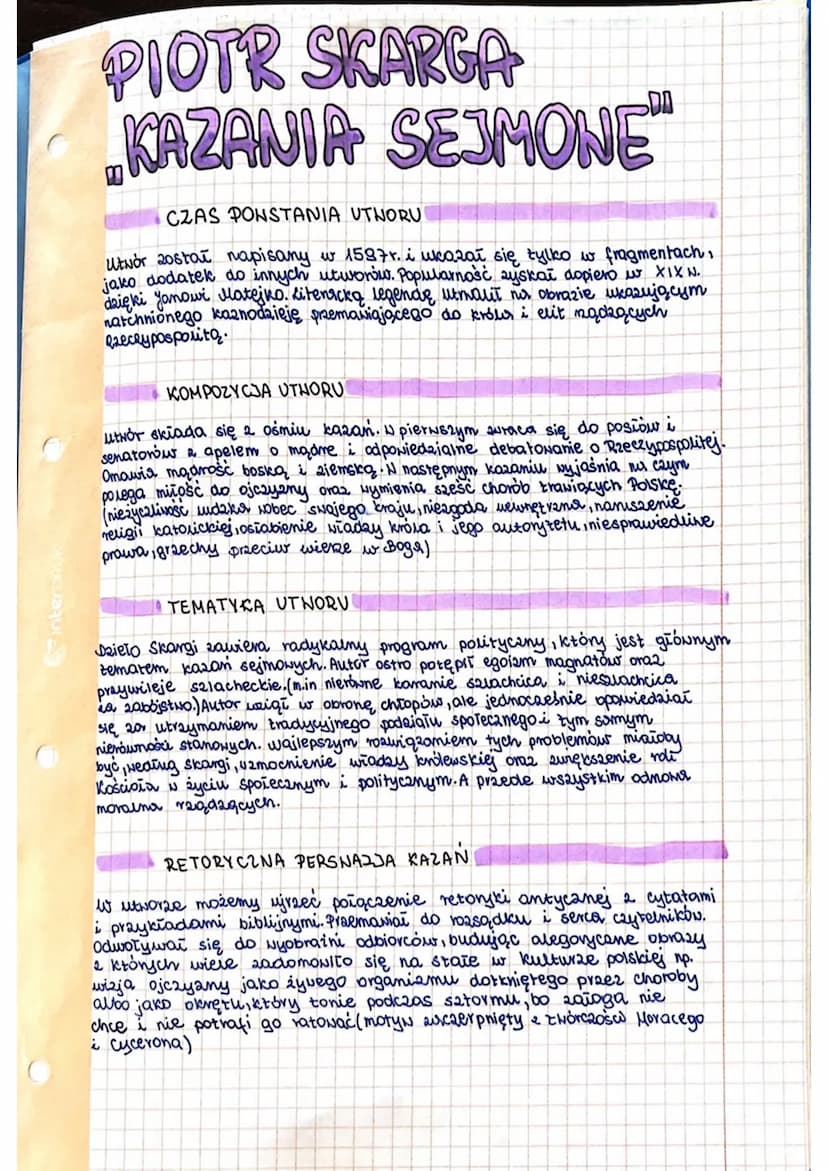 PIOTR SKARGA
„KAZANIA SEJMOWE"
CZAS POWSTANIA UTWORU
Utwór został napisany w 1587r. i ukazał się tylko w fragmentach,
jako dodatek do innych utworów. Popularność zyskał dopiero w XIX w.
dzięki Janowi Matejko. Literacką legendę utrwalił na obrazie ukazującym
natchnionego kaznodzieję przemawiającego do króla i elit rządzących
Rzeczypospolitą.
KOMPOZYCJA UTWORU
Utwór składa się z ośmiu kazań. W pierwszym zwraca się do posłów i
senatorów z apelem o mądre i odpowiedzialne debatowanie o Rzeczypospolitej.
Omawia mądrość boską i ziemską. W następnym kazaniu wyjaśnia na czym
polega miłość do ojczyzny oraz wymienia sześć chorób trawiących Polskę.
(nieżyczliwość ludzka wobec swojego kraju, niezgoda wewnętrzna, naruszenie
religii katolickiej, osłabienie władzy króla i jego autorytetu, niesprawiedliwe
prawa, grzechy przeciw wierze w Boga)
TEMATYKA UTWORU
Dzieło Skargi zawiera radykalny program polityczny, który jest głównym
tematem kazań sejmowych. Autor ostro potępił egoizm magnatów oraz
przywileje szlacheckie. (m.in nierówne karanie szlachcica i nieszlachcica
za zabójstwo.) Autor wziął w obronę chłopów, ale jednocześnie opowiedział
się za utrzymaniem tradycyjnego podziału społecznego i tym samym
nierówności stanowych. Najlepszym rozwiązaniem tych problemów miałoby
być, według Skargi, uzmocnienie władzy królewskiej oraz zwiększenie roli
Kościoła w życiu społecznym i politycznym. A przede wszystkim odnowa
moralna rządzących.
RETORYCZNA PERSWAZJA KAZAŃ
W utworze możemy ujrzeć połączenie retoryki antycznej z cytatami
i przykładami biblijnymi. Przemawiał do rozsądku i serca czytelników.
Odwoływał się do wyobraźni odbiorców, budując alegoryczne obrazy
z których wiele zadomowiło się na stałe w kulturze polskiej np.
wizja ojczyzny jako żywego organizmu dotkniętego przez choroby
albo jako okrętu, który tonie podczas sztormu, bo załoga nie
chce i nie potrafi go ratować (motyw zaczerpnięty z twórczości Horacego
i Cycerona)